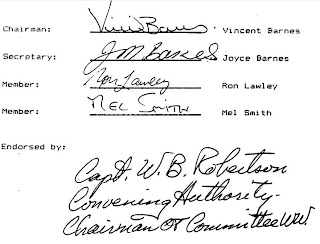 Chairman: Vinci Barnes Vincent Barnes
Secretary: J M Barnes Joyce Barnes
Member: Ron Lawley Ron Lawley
Member: MEL SMITH Mel Smith
Endorsed by:
Capt. W. B. Robertson
Convening Authority-
Chairman of Committee WW.